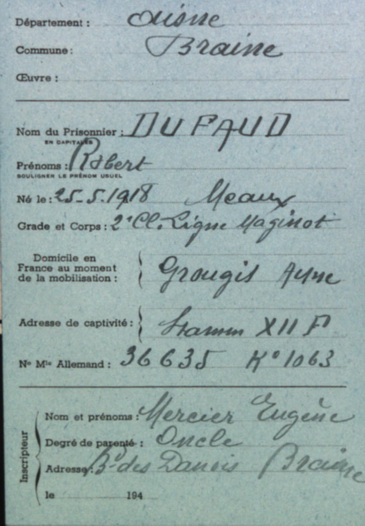 Département : Aisne
Commune : Braine
Œuvre :
Nom du Prisonnier : DUPAUD
EN CAPITALES
Prénoms : Robert
SOULIGNER LE PRÉNOM USUEL
Né le : 25-5-1918 Meaux
Grade et Corps : 2e Cl. Ligne Maginot
Domicile en
France au moment
de la mobilisation : Grougis Aisne
Adresse de captivité : Stamm XII F
No Mle Allemand : 36635 Ko 1063
Inscripteur
Nom et prénoms : Mercier Eugène
Degré de parenté : Oncle
Adresse : Bd des Danois Braine
le 194